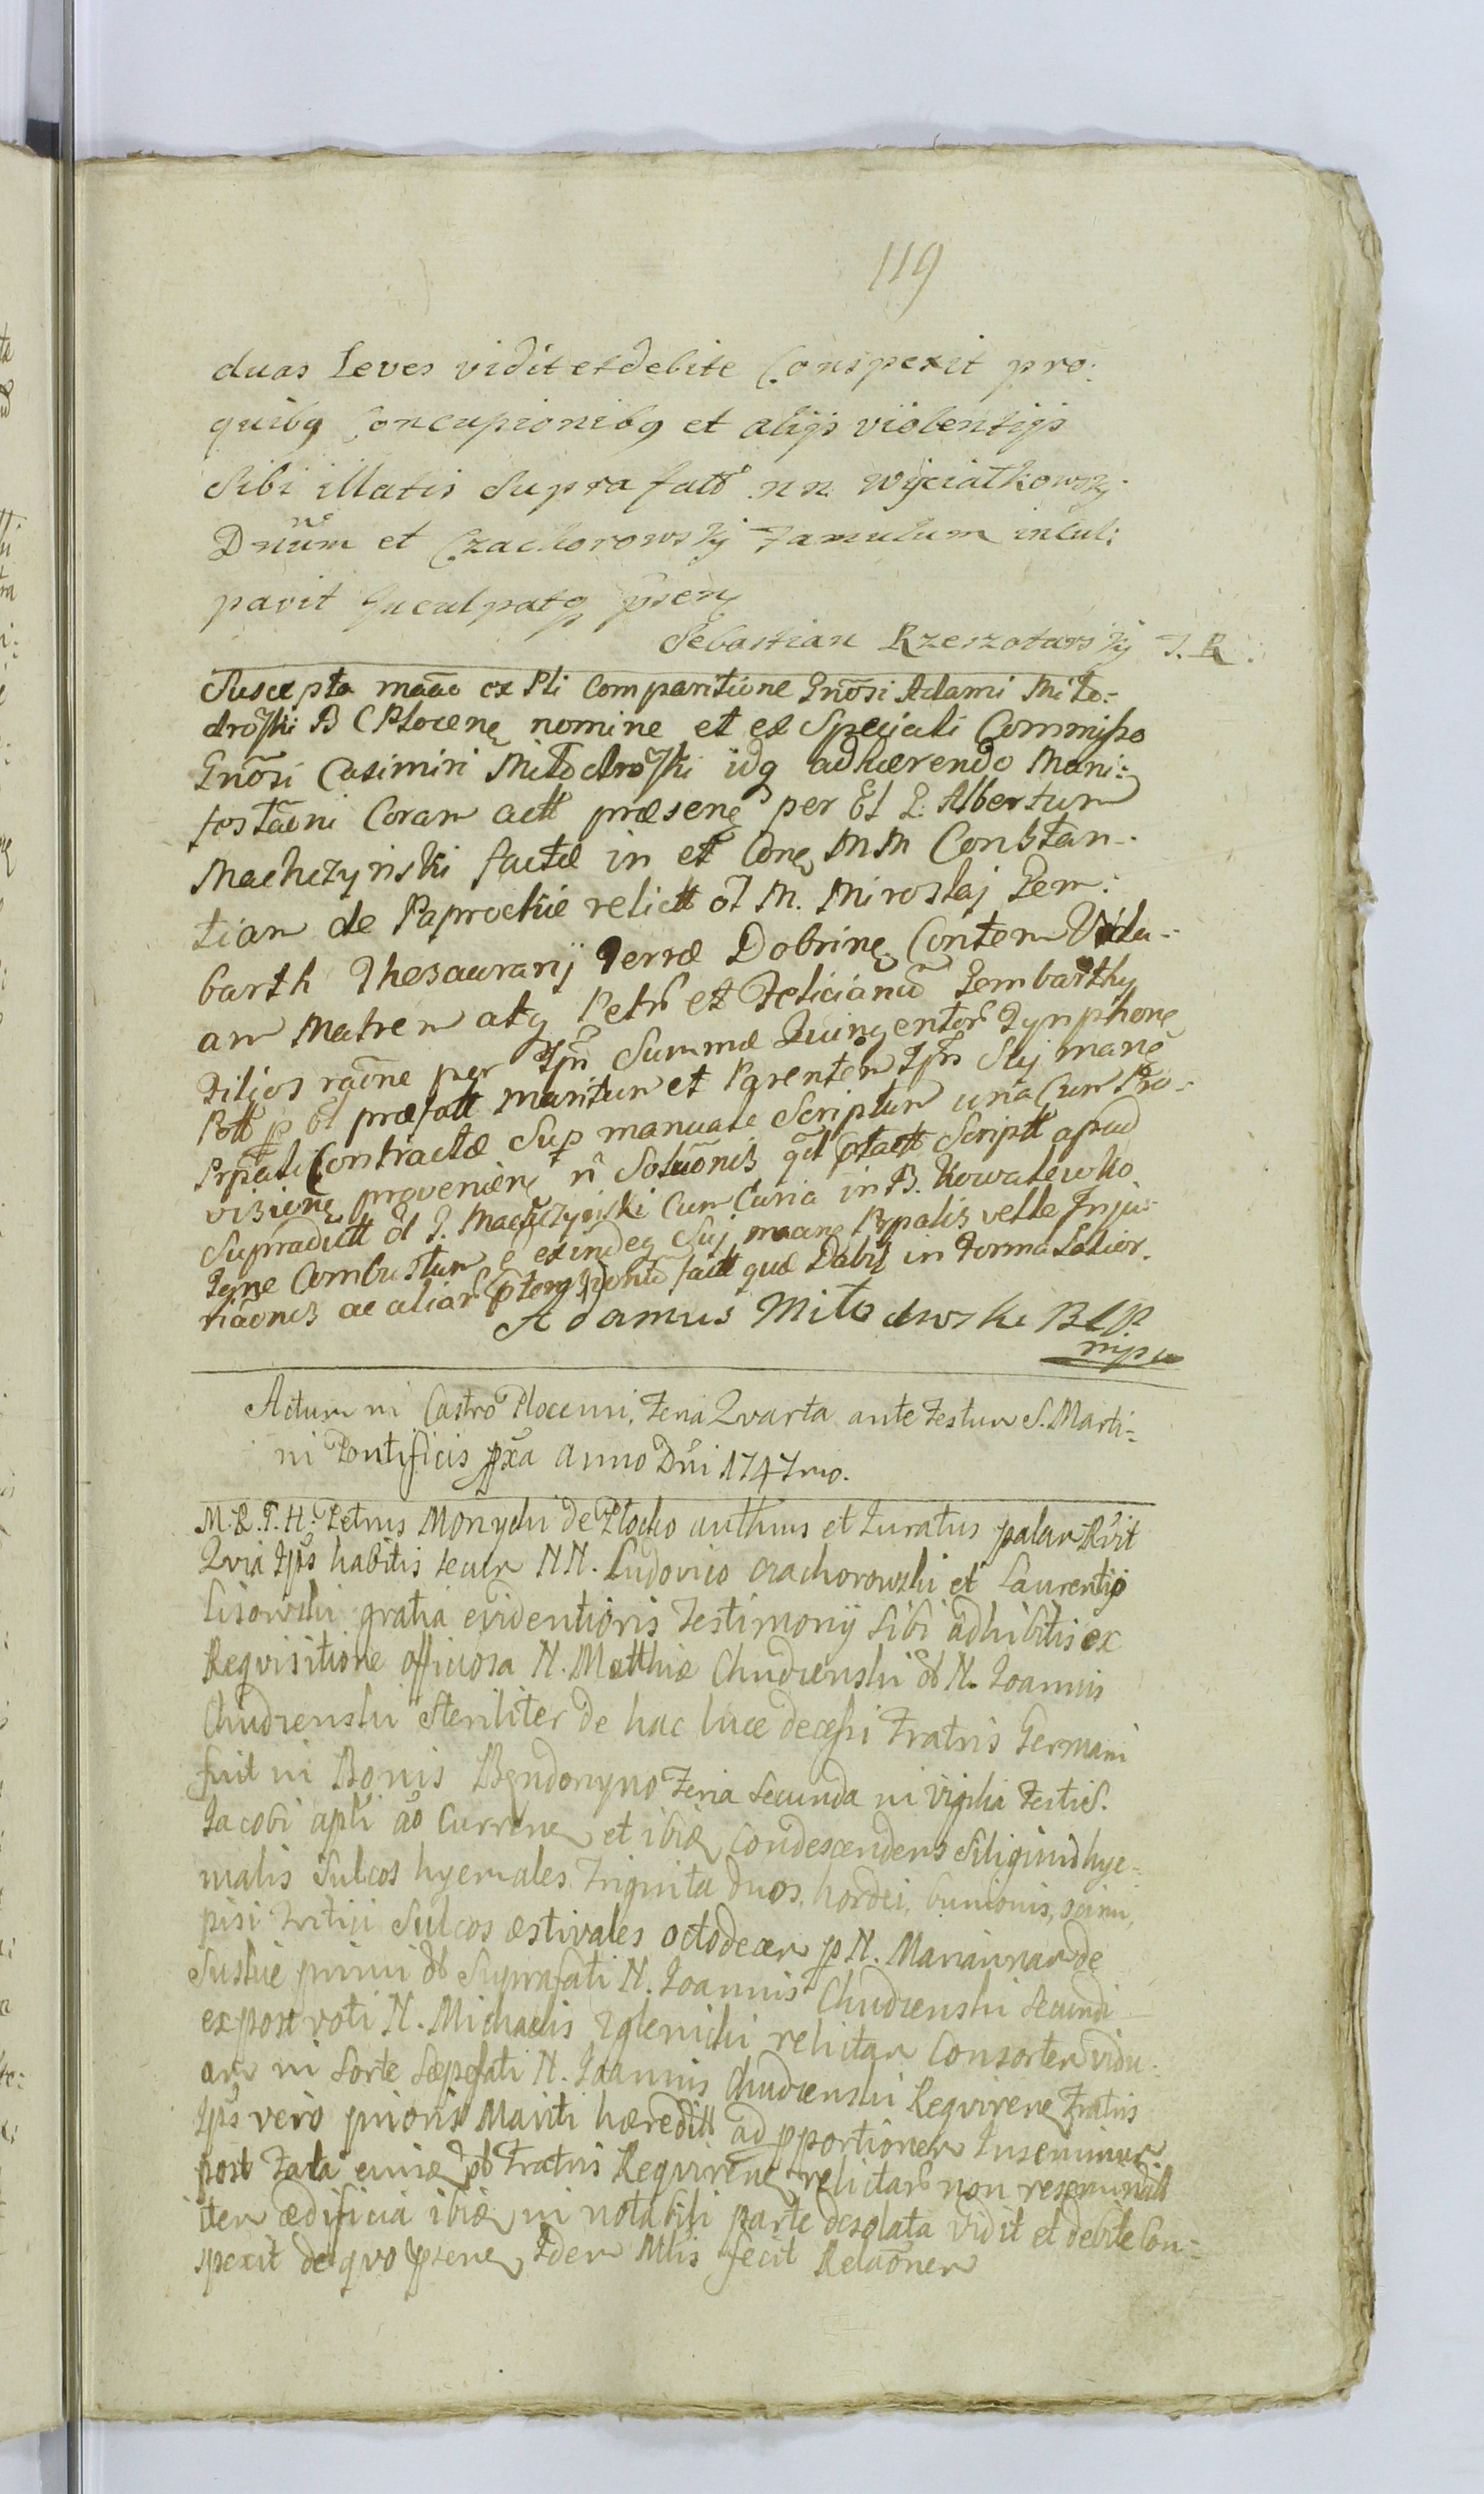 119
duas Leves vidit et debite Conspexit pro:
quibq Concupionibq et alijs violentijs
Sibi illatis Supra fatt nn Wyciatkowskj
Dnum et Czachorowskj Famulum incul:
pavit Inculpatq
Sebastian Rzeszotarskj J. R.
Suscepta ex Pli Comparitione Gnosi Adami Miło-
droski B C Plocenę nomine et ex Speciali Commisso
Gnosi Casimiri Miłodroski idq adhærendo Mani:
festaoni Coram actt præsenę per Albertum
Machczyński factæ in et Conę MM Constan-
tiam de Paprockie relictt M. Miroslaj Pem:
barth Thesaurarij Terræ Dobrinę Contem Vidu-
am Matrem atq Petr et Felicianu Pembarthy
Filjos raone per Summæ Quingentor Tynphone
præfatt maritum et Parentem Suj
Contractæ Sup manuale Scriptum una Cum Pro-
visione provenienę Scriptt apud
Supradictt Machczyński Cum Curia in B. Kowalewko
Igne Combustum exindeq Suj velle Inju-
riaonis ac aliar factt quæ Dabis in Forma Latior.
Adamus Miłodroski BCP.
mpa
Actum in Castro Plocensi, Feria Qvarta ante Festum S. Marti-
ni Pontificis pxa Anno Dni 1747mo.
M.R.T.H. Petrus Monychi de Plocko authus et Juratus palam Rvit
Qvia Ips habitis secum NN. Ludovico Czachorowski et Laurentijo
Lisowski gratia evidentioris Testimonij Sibi adhibitis ex
Reqvisitione officiosa N. Matthiæ Chudzenski N. Joannis
Chudzenski Steriliter de hac luce decessi Fratris Germani
fuit in Bonis Bendonyno Feria Secunda in vigilia Festi S.
Jacobi apli ao Currene et ibiq Condescendens Siliginis hye-
malis Sulcos hyemales Triginta duos, hordei,
pisi Tritici Sulcos æstivales octodecem p N. Mariannam de
Suskie primi Suprafati N. Joannis Chudzenski Secundi
ex post voti N. Michaelis Zglenicki relictam Consortem vidu-
am in Sorte Sæpefati N. Joannis Chudzenski Reqvirenę Fratris
Ips vero prioris Mariti hæreditt ad pportionem
post Fata Fratris Reqvirenę relictar non reseminatt
item ædificia ibiq in notabili parte desolata vidit et debite Con-
spexit de qvo psenę Idem Mlis fecit Relaonem